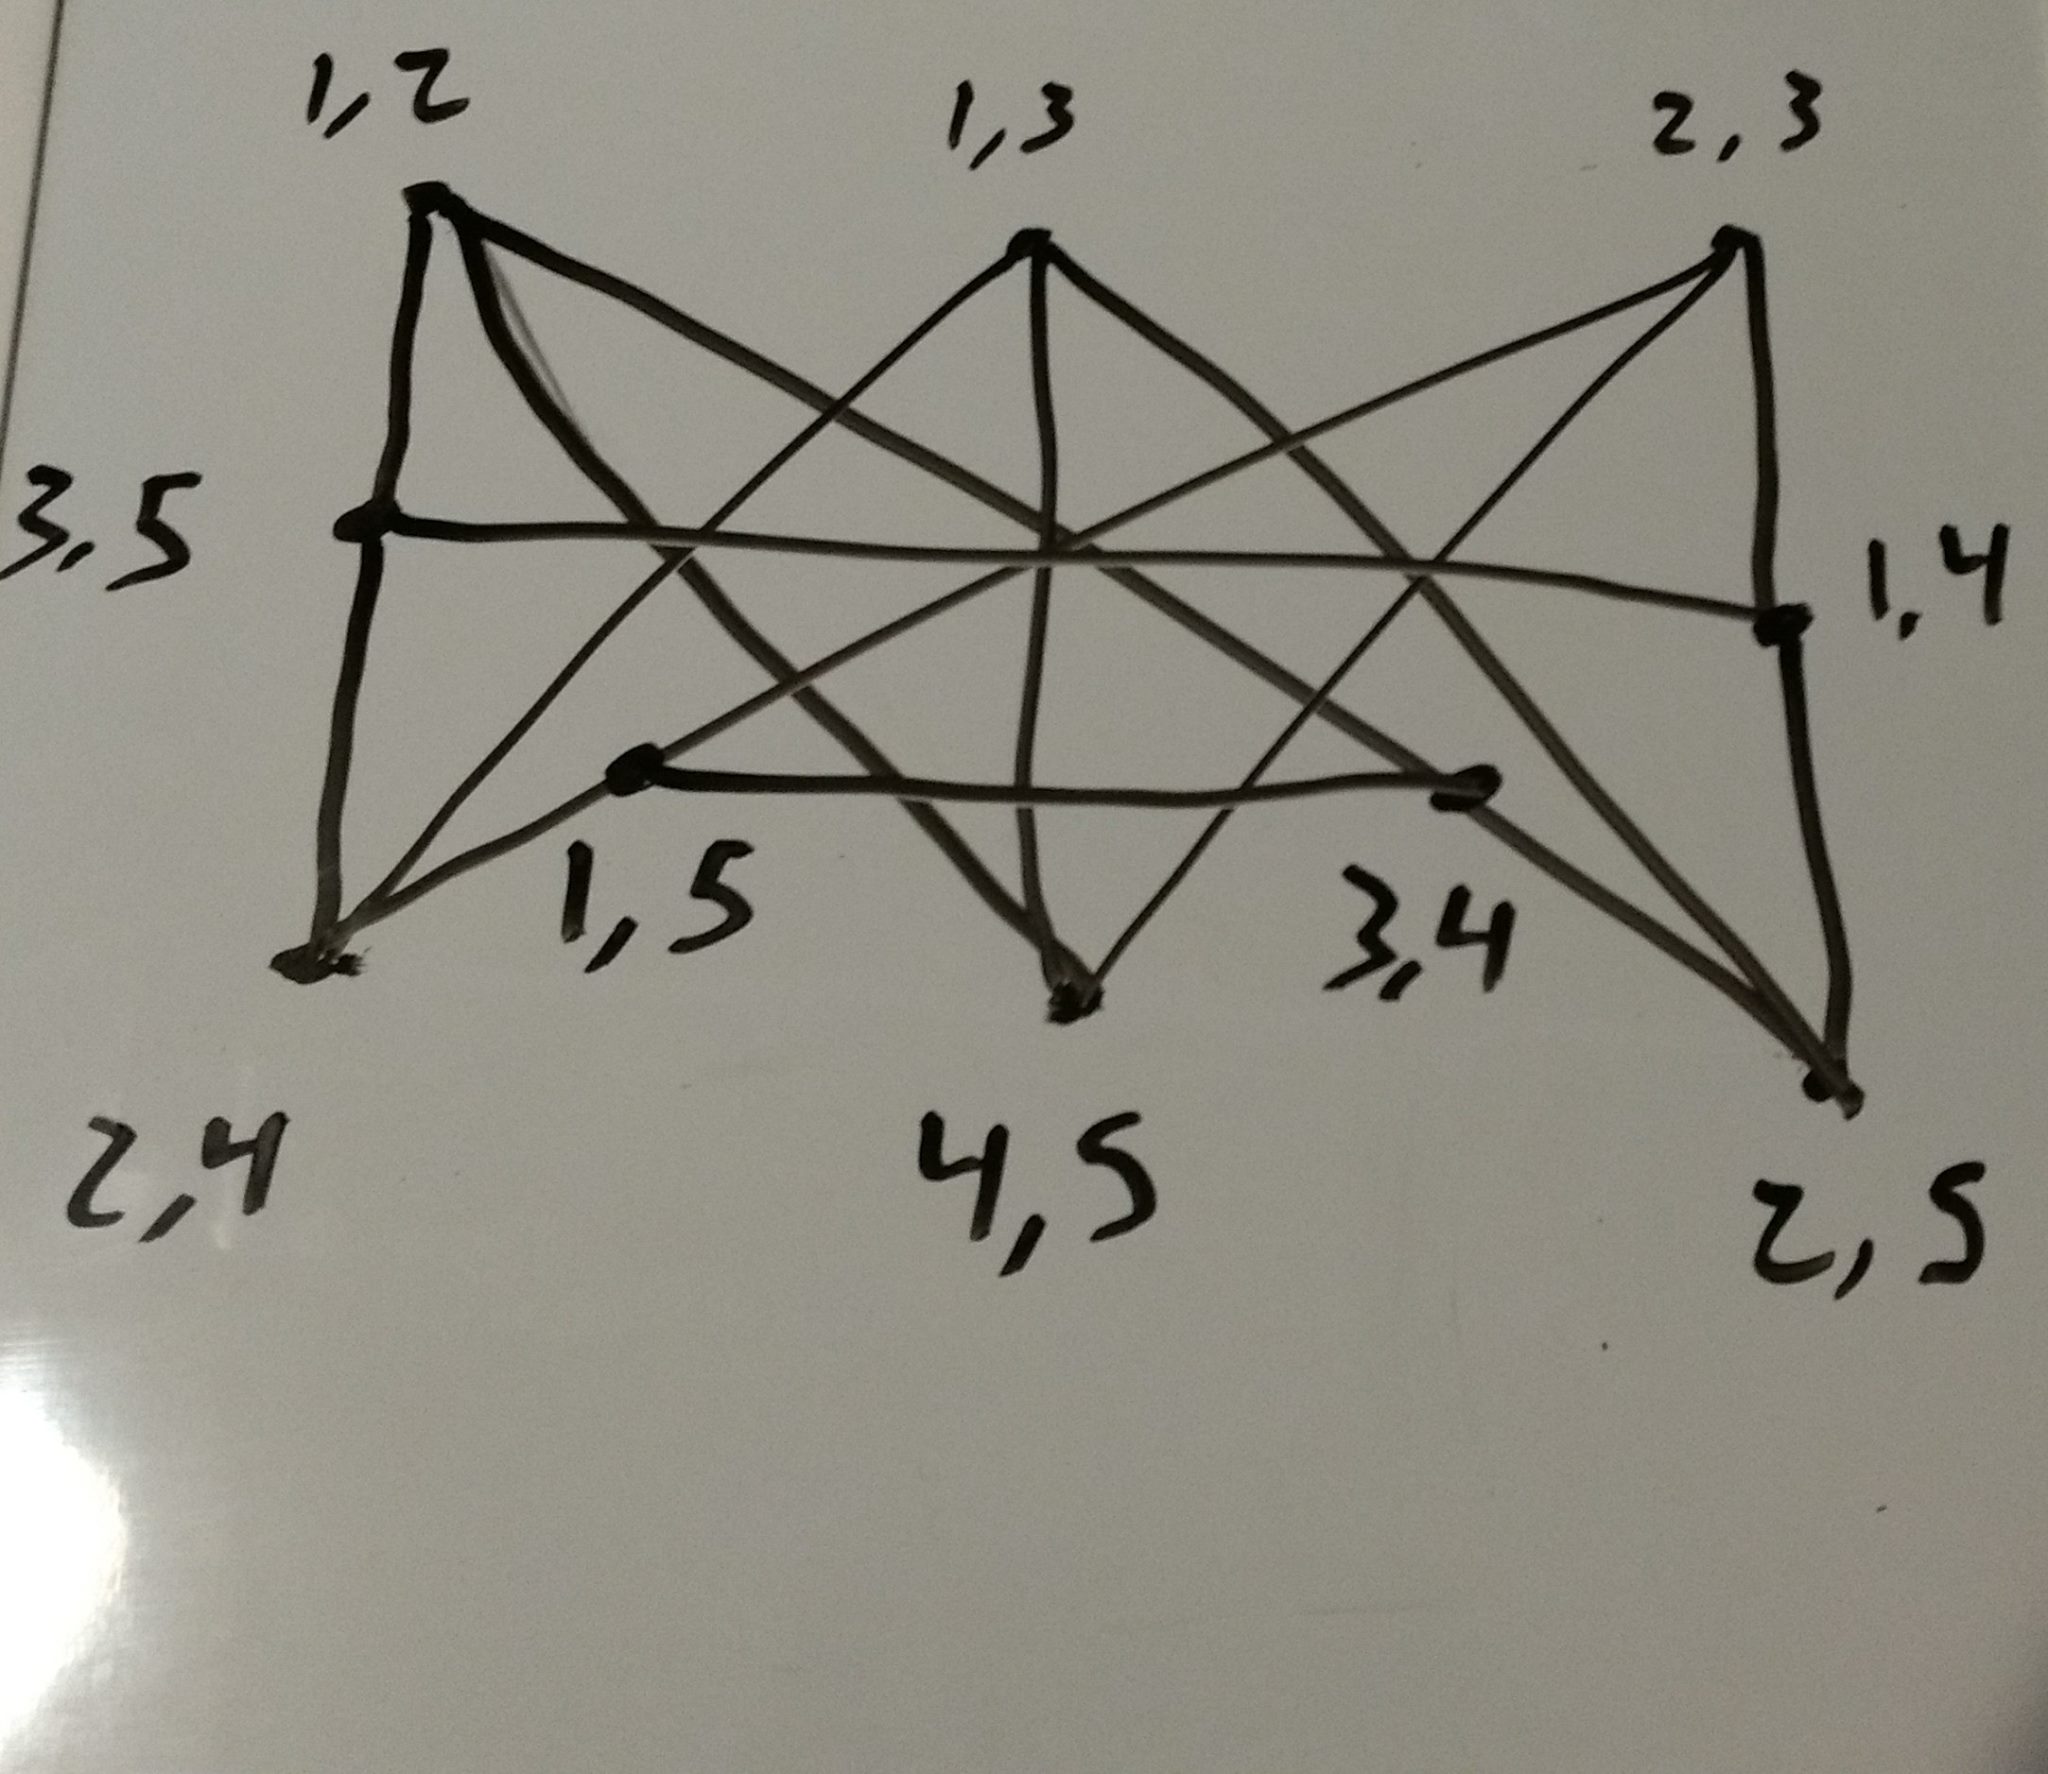 1,2
1,3
2,3
3,5
1,4
1,5
3,4
2,4
4,5
2,5